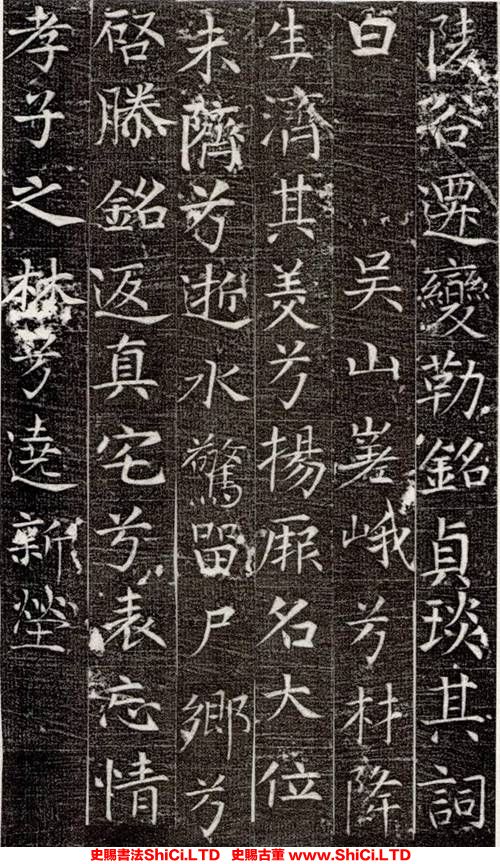 陵谷遷變勒銘貞琰其詞
曰 吴山嵳峨兮材降
生濟其美兮揚厥名大位
未躋兮逝水驚留尸鄉兮
啓滕銘返真宅兮表忘情
孝子之林兮遶新塋
史賜書法ShiCi.LTD 史賜古董 www.ShiCi.LTD